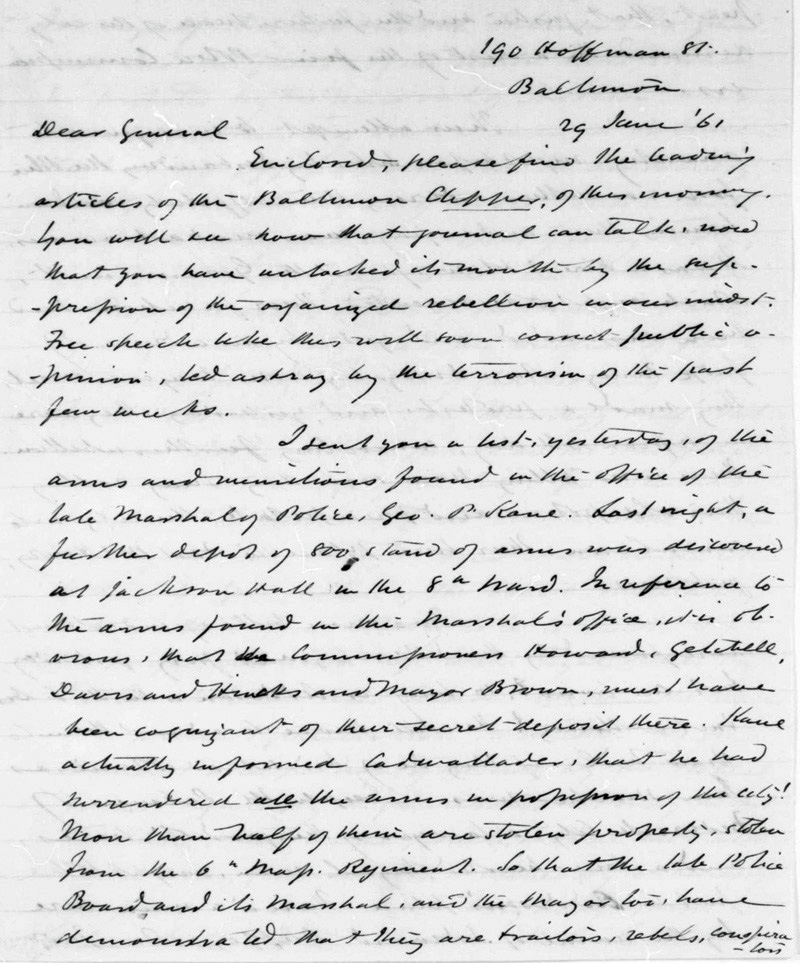 190 Hoffman St.
Baltimore
Dear General 29 June '61
Enclosed, please find the leading
articles of the Baltimore Clipper, of this morning.
You will see how that journal can talk, now
that you have unlocked its mouth by the sup-
-pression of the organized rebellion in our midst.
Free speech like this will soon correct public o-
-pinion, led astray by the terrorism of the past
few weeks.
I sent you a list, yesterday, of the
arms and munitions found in the office of the
late Marshal of Police, Geo. P. Kane. Last night, a
further depot of 800 stand of arms was discovered
at Jackson Hall in the 8th Ward. In reference to
the arms found in the Marshal's office, it is ob-
vious, that the Commissioners Howard, Getchell,
Davis and Hincks and Mayor Brown, must have
been cognizant of their secret deposit there. Kane
actually informed Cadwallader, that he had
surrendered all the arms in possession of the city!
More than half of them are stolen property, stolen
from the 6th Mass. Regiment. So that the late Police
Board and its Marshal, and the Mayor too, have
demonstrated that they are traitors, rebels, conspira
-tors